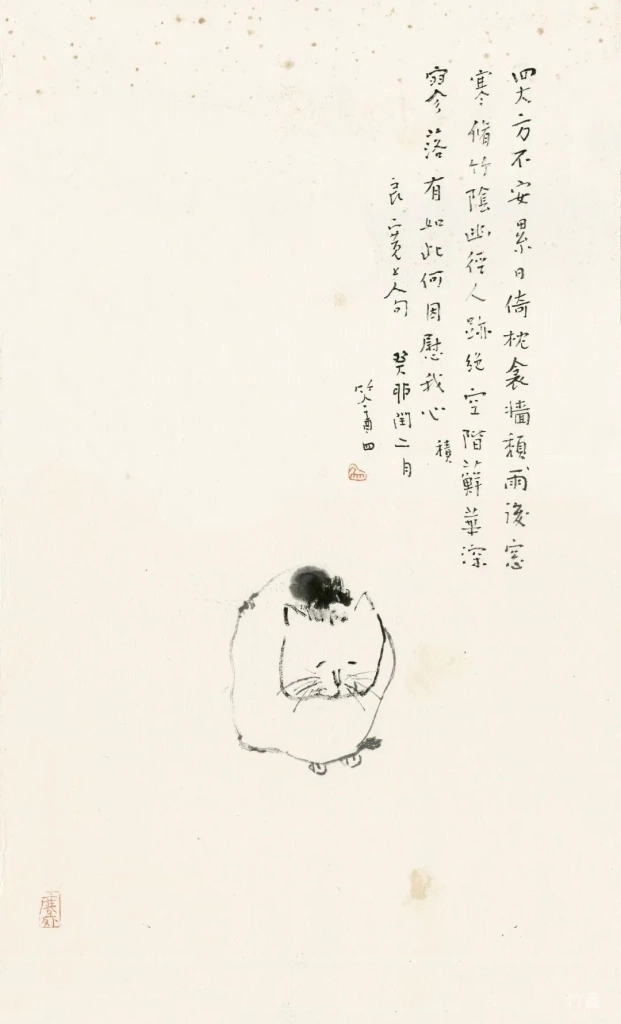 四大方不安累日倚枕衾牆頹雨後窓
寒脩竹陰幽徑人跡絶空階蘚華深
寥落有如此何因慰我心 積
良寬上人句 癸卯閏二月